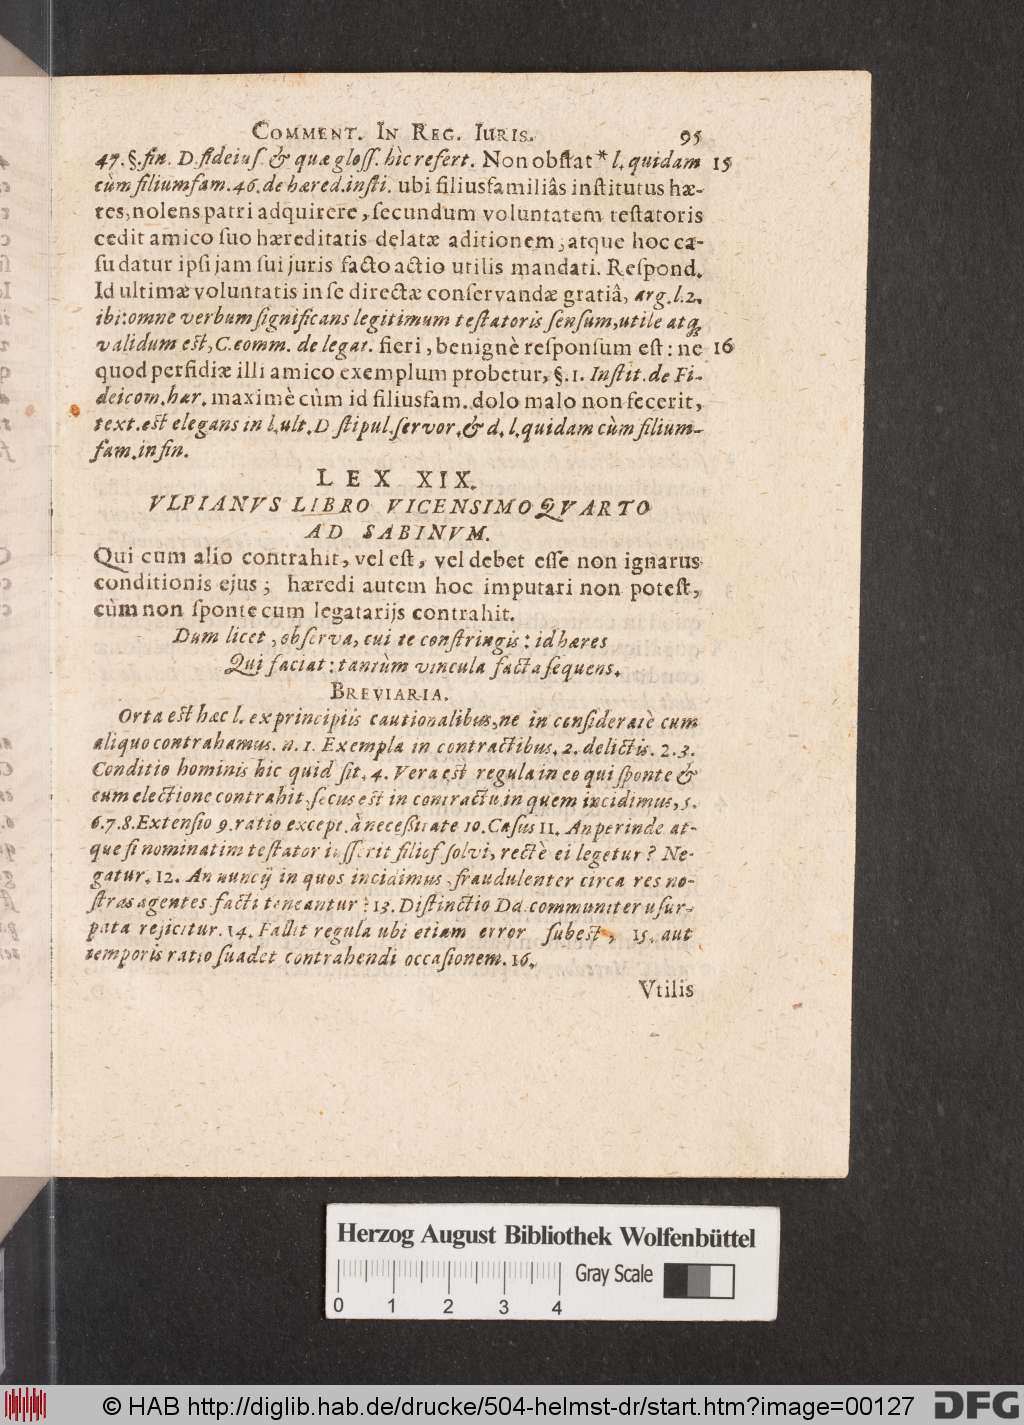 COMMENT. IN REG. IURIS. 95
47. §. fin. D. fideiuſ. & quæ gloſſ. hìc refert. Non obſtat * l. quidam 15
cùm filiumfam. 46. de hæred. inſti. ubi filiusfamiliâs inſtitutus hæ-
res, nolens patri adquirere, ſecundum voluntatem teſtatoris
cedit amico ſuo hæreditatis delatæ aditionem, atque hoc ca-
ſu datur ipſi jam ſui juris facto actio utilis mandati. Reſpond.
Id ultimæ voluntatis in ſe directæ conſervandæ gratiâ, arg. l. 2.
ibi: omne verbum ſignificans legitimum teſtatoris ſenſum, utile atq́;
validum eſt, C. comm. de legat. fieri, benignè reſponſum eſt: ne 16
quod perfidiæ illi amico exemplum probetur, §. 1. Inſtit. de Fi-
deicom. hær. maximè cùm id filiusfam. dolo malo non fecerit,
text. eſt elegans in l. ult. D ſtipul. ſervor. & d. l. quidam cùm filium-
fam. in fin.
LEX XIX.
VLPIANVS LIBRO VICENSIMO QVARTO
AD SABINVM.
Qui cum alio contrahit, vel eſt, vel debet eſſe non ignarus
conditionis ejus; hæredi autem hoc imputari non poteſt,
cùm non ſponte cum legatarijs contrahit.
Dum licet, obſerva, cui te conſtringis: id hæres
Qui faciat: tantùm vincula facta ſequens.
BREVIARIA.
Orta eſt hæc l. ex principiis cautionalibus, ne in conſideratè cum
aliquo contrahamus. n. 1. Exempla in contractibus. 2. delictis. 2. 3.
Conditio hominis hic quid ſit. 4. Vera eſt regula in eo qui ſponte &
cum electione contrahit, ſecus eſt in contractu in quem incidimus, 5.
6. 7. 8. Extenſio 9. ratio except. à neceßitate 10. Caſus 11. An perinde at-
que ſi nominatim teſtator iuſſerit filiof. ſolvi, rectè ei legetur? Ne-
gatur. 12. An nuncij in quos incidimus, fraudulenter circa res no-
ſtras agentes facti teneantur? 13. Diſtinctio Dd. communiter uſur-
pata rejicitur. 14. Fallit regula ubi etiam error ſubeſt, 15. aut
temporis ratio ſuadet contrahendi occaſionem. 16.
Vtilis
Herzog August Bibliothek Wolfenbüttel
Gray Scale
0 1 2 3 4
© HAB http://diglib.hab.de/drucke/504-helmst-dr/start.htm?image=00127
DFG